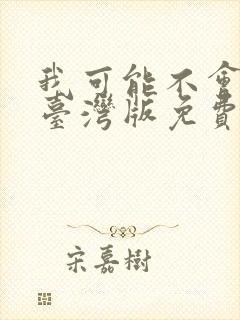 我可能不會
臺灣版免費
宋嘉樹